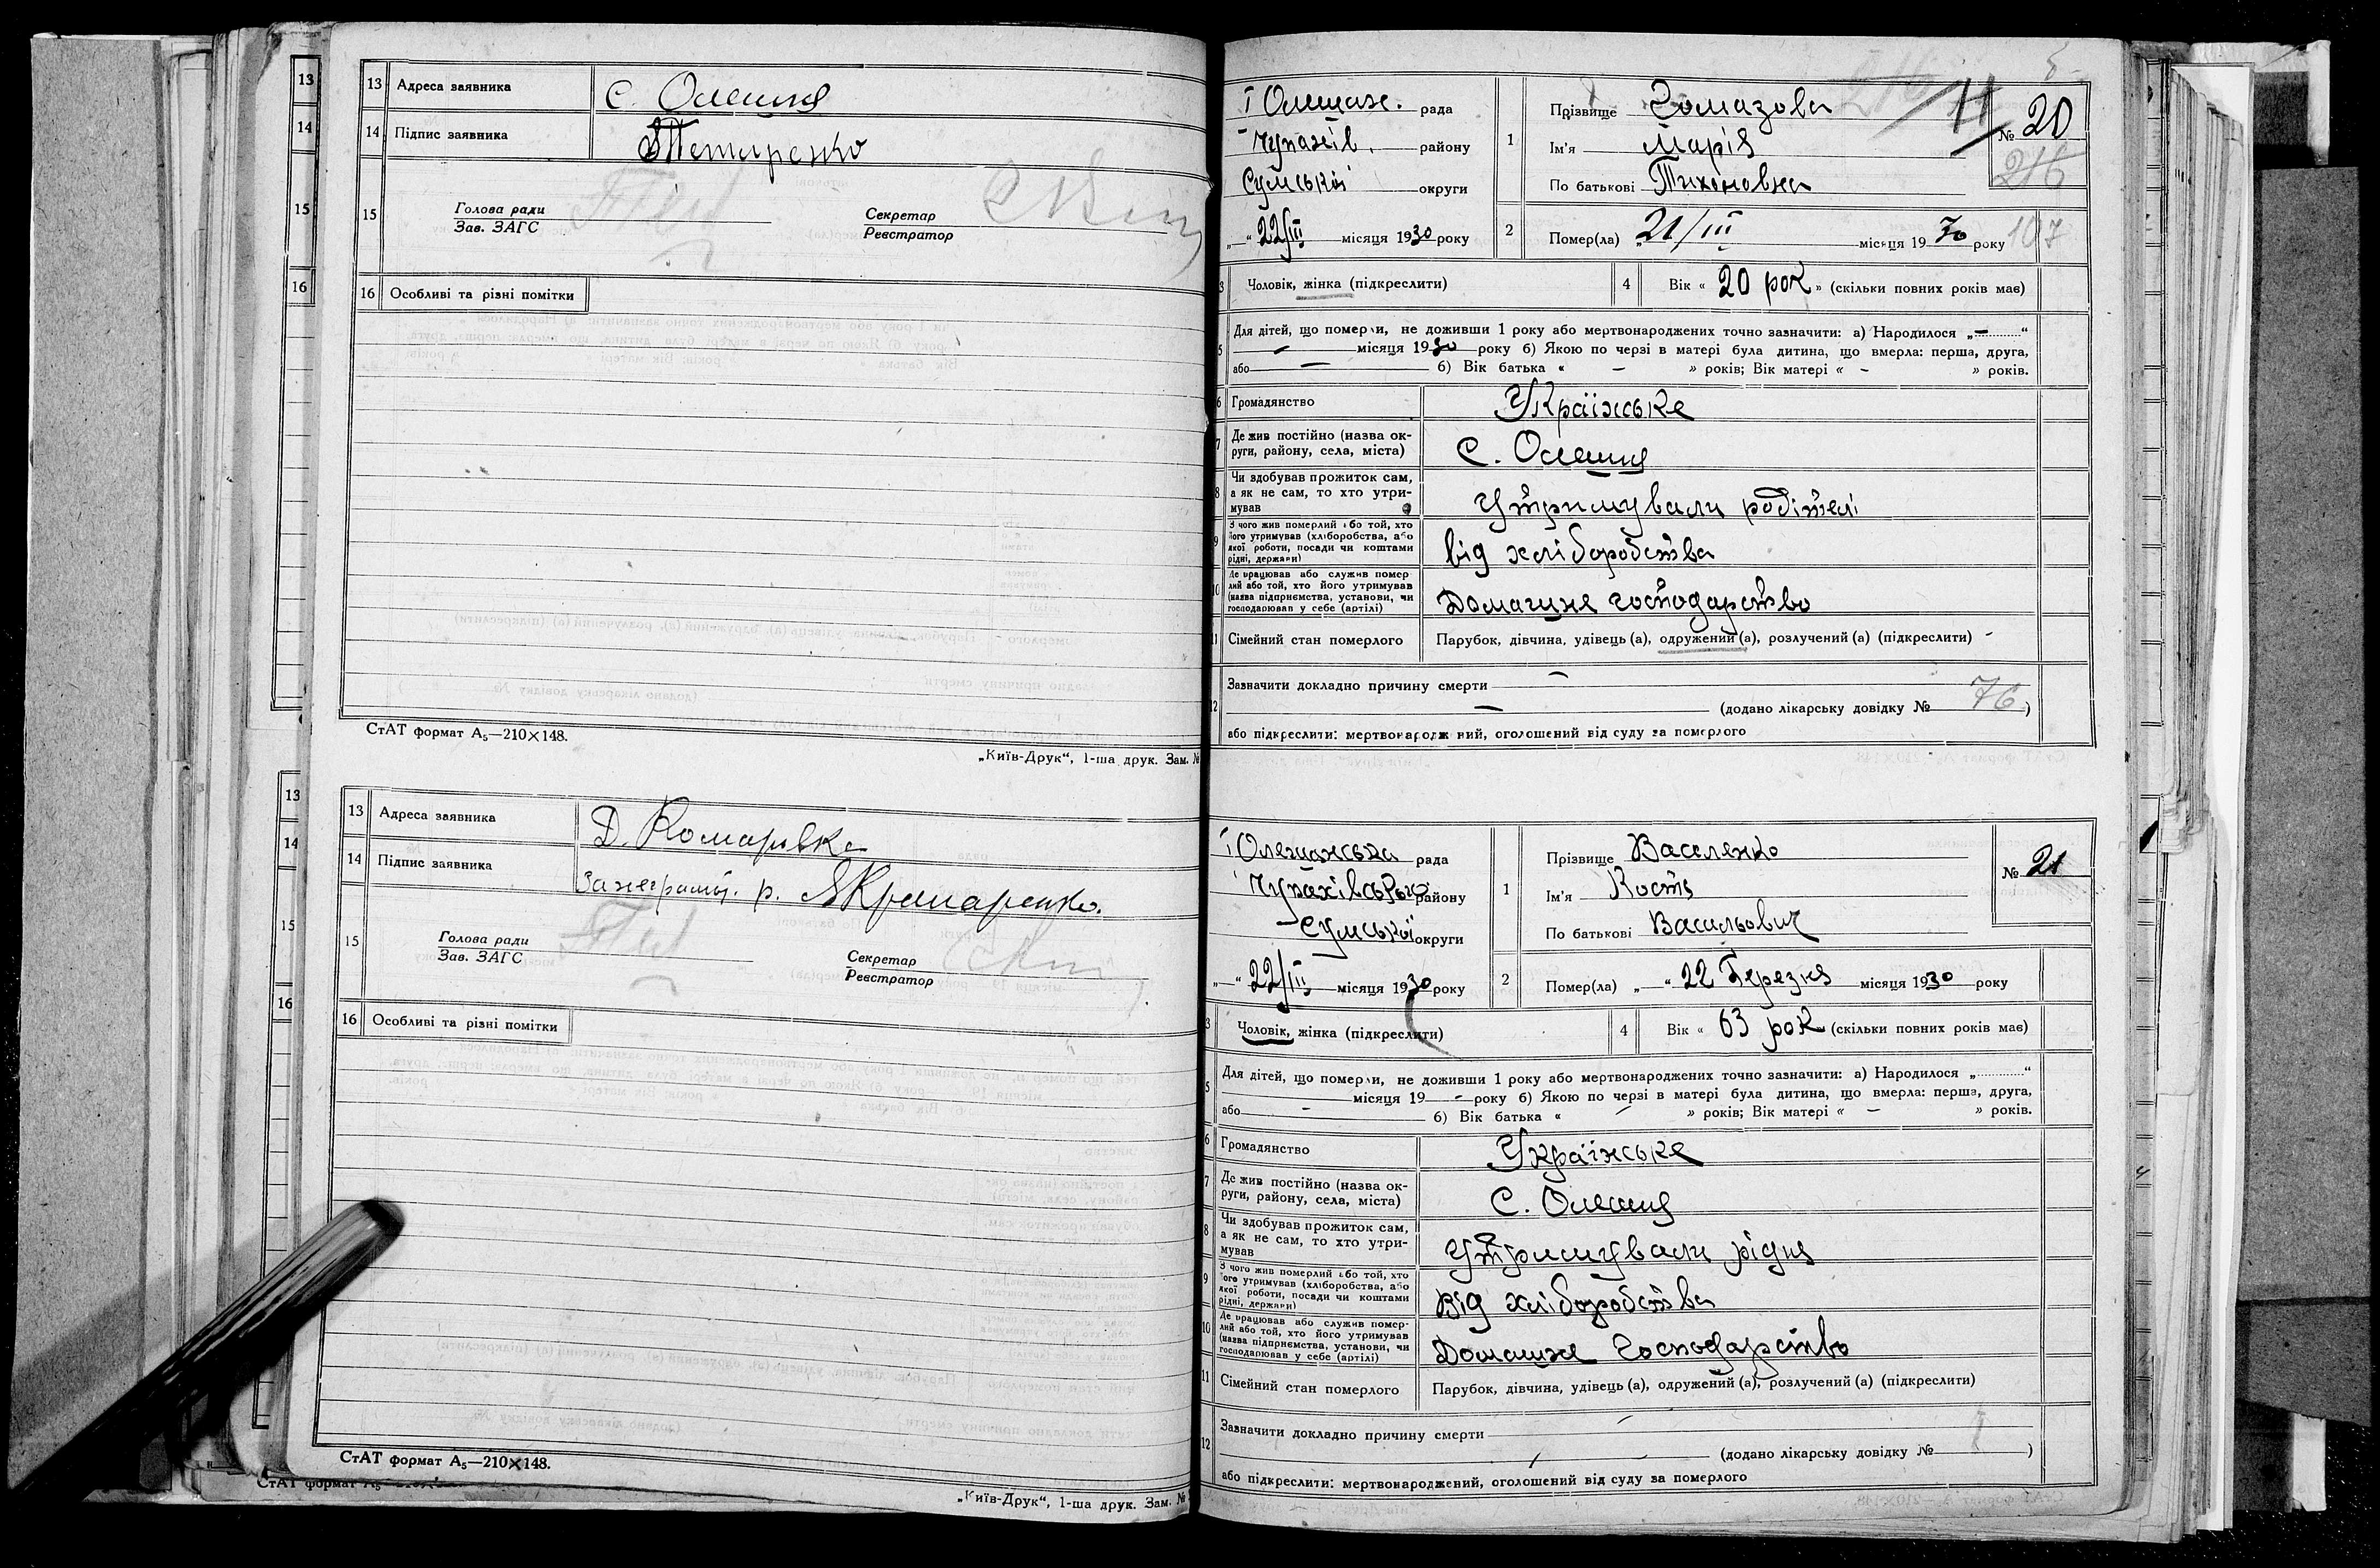 13 Адреса заявника С. Олешня
14 Підпис заявника Тетиренко
15 Голова ради
Зав. ЗАГС
Секретар
Реєстратор
16 Особливі та різні помітки
СтАТ формат А₅—210×148.
„Київ-Друк“, 1-ша друк. Зам. №
13 Адреса заявника Д. Комарівка
14 Підпис заявника За неграмот. р. Я Крамаренко.
15 Голова ради
Зав. ЗАГС
Секретар
Реєстратор
16 Особливі та різні помітки
СтАТ формат А₅—210×148.
„Київ-Друк“, 1-ша друк. Зам. №
І Олешан. рада
Чупахів. району
Сумської округи
„—“ 22/III місяця 1930 року
1 Прізвище Гомазова
Ім'я Марія
По батькові Тихоновна
№ 20
216
11
2 Помер(ла) 21/III місяця 1930 року 107
3 Чоловік, жінка (підкреслити)
4 Вік « 20 рок » (скільки повних років має)
5 Для дітей, що померли, не доживши 1 року або мертвонароджених точно зазначити: а) Народилося „—“
— місяця 1930 року б) Якою по черзі в матері була дитина, що вмерла: перша, друга,
або — б) Вік батька « — » років; Вік матері « - » років.
6 Громадянство Українське
7 Де жив постійно (назва округи, району, села, міста) С. Олешня
8 Чи здобував прожиток сам, а як не сам, то хто утримував Утримували родітелі
9 З чого жив померлий або той, хто його утримував (хліборобства, або якої роботи, посади чи коштами рідні, держави) від хліборобства
10 Де працював або служив померлий або той, хто його утримував (назва підприємства, установи, чи господарював у себе (артілі) Домашнє господарство
11 Сімейний стан померлого Парубок, дівчина, удівець (а), одружений (а), розлучений (а) (підкреслити) -
12 Зазначити докладно причину смерти —
— (додано лікарську довідку № 76)
або підкреслити: мертвонароджений, оголошений від суду за померлого
І Олешанська рада
Чупахівського району
Сумської округи
„—“ 22/III місяця 1930 року
1 Прізвище Василенко
Ім'я Кость
По батькові Васильович
№ 21
2 Помер(ла) „ “ 22 Березня місяця 1930 року
3 Чоловік, жінка (підкреслити)
4 Вік « 63 рок (скільки повних років має)
5 Для дітей, що померли, не доживши 1 року або мертвонароджених точно зазначити: а) Народилося „............“
місяця 19 - року б) Якою по черзі в матері була дитина, що вмерла: перша, друга,
або - б) Вік батька « — » років; Вік матері « — » років.
6 Громадянство Українське
7 Де жив постійно (назва округи, району, села, міста) С. Олешня
8 Чи здобував прожиток сам, а як не сам, то хто утримував Утримували рідня
9 З чого жив померлий або той, хто його утримував (хліборобства, або якої роботи, посади чи коштами рідні, держави) Від хліборобства
10 Де працював або служив померлий або той, хто його утримував (назва підприємства, установи, чи господарював у себе (артілі) Домашнє Господарство
11 Сімейний стан померлого Парубок, дівчина, удівець (а), одружений (а), розлучений (а) (підкреслити)
12 Зазначити докладно причину смерти
(додано лікарську довідку № )
або підкреслити: мертвонароджений, оголошений від суду за померлого